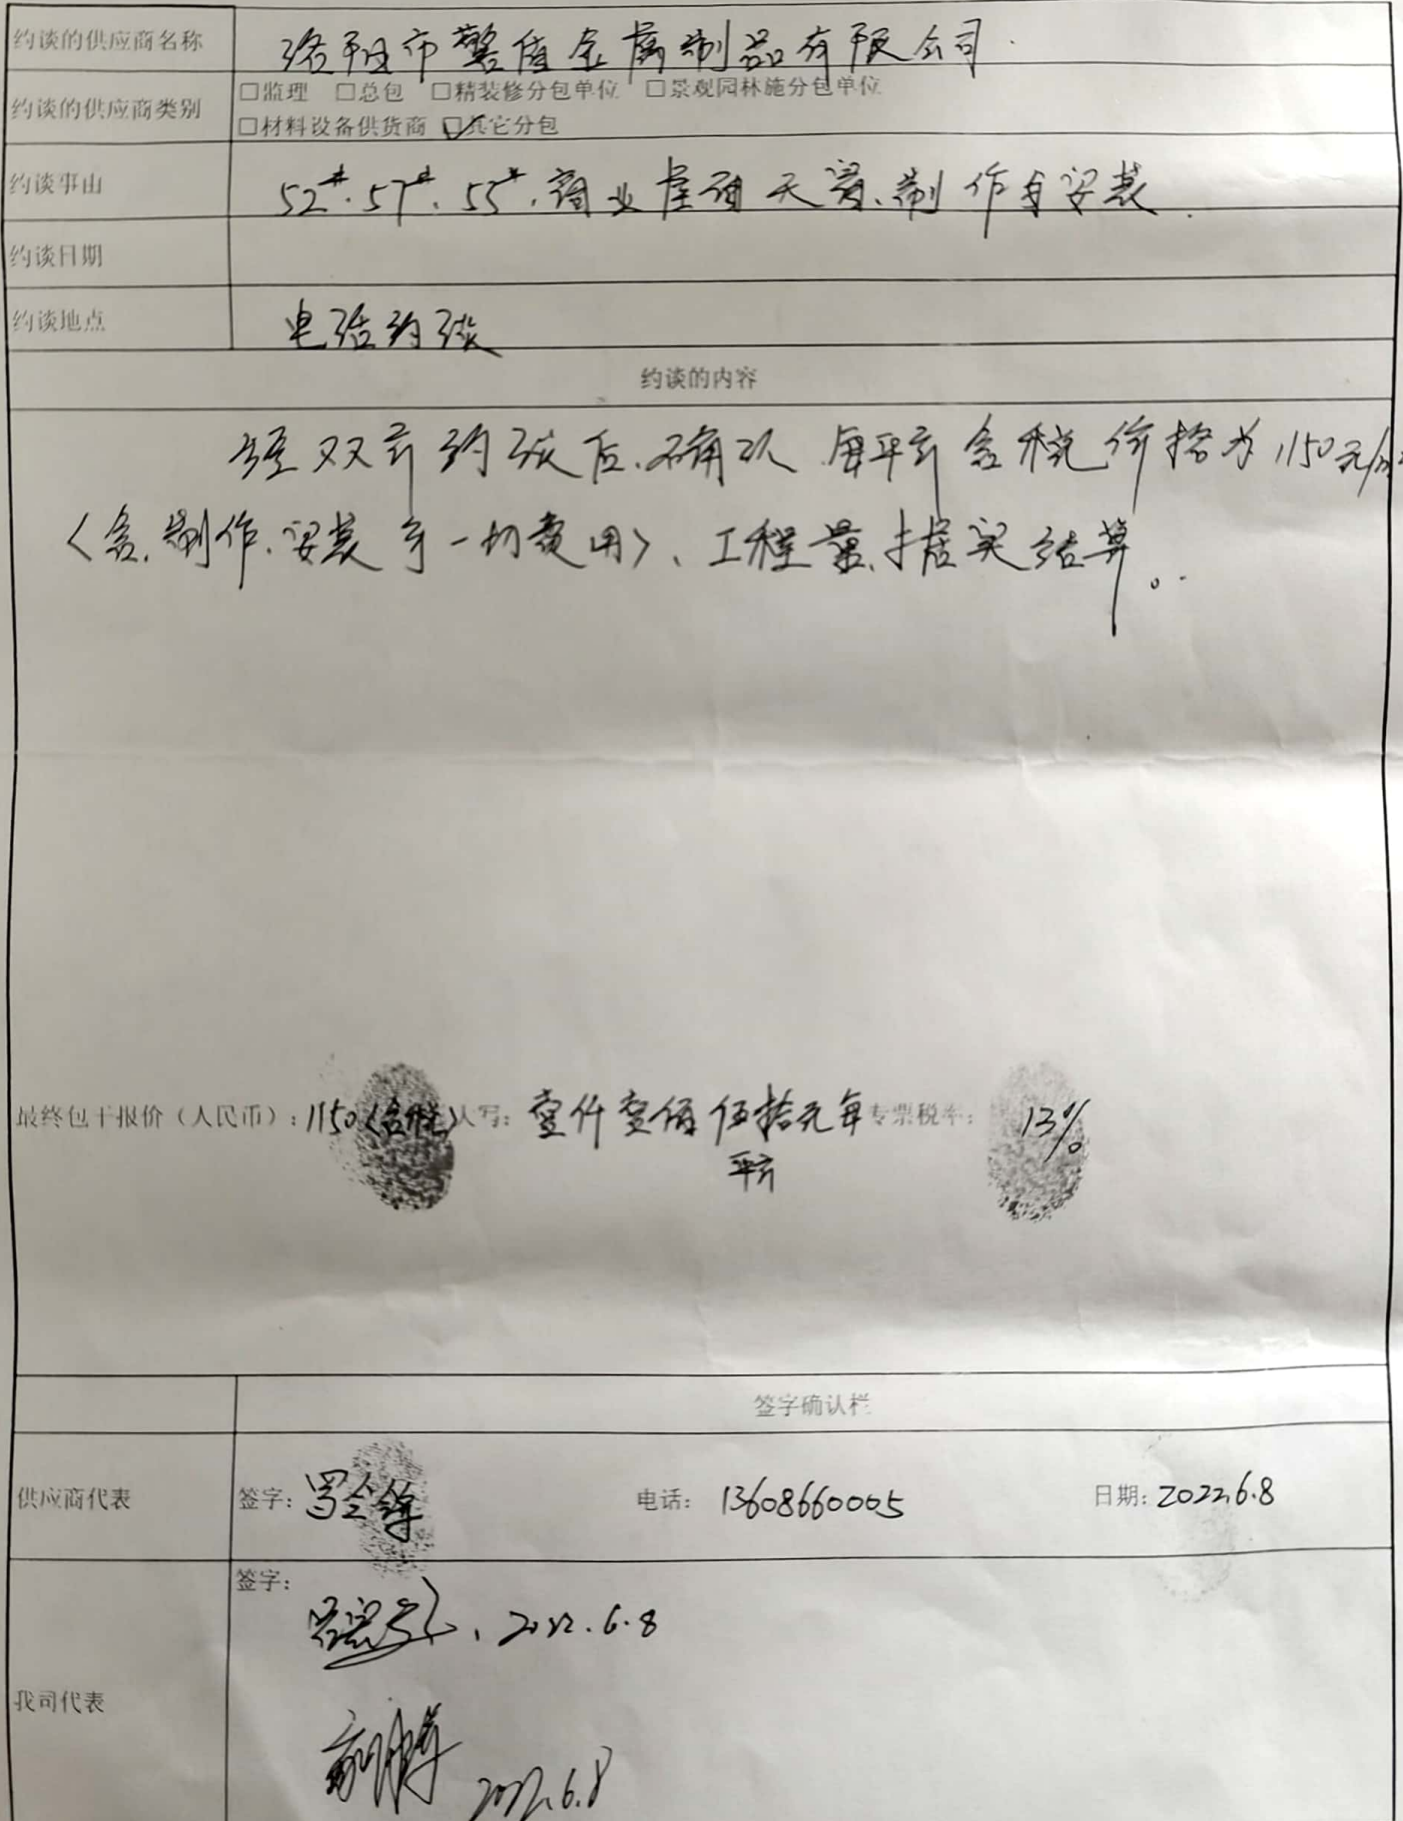 约谈的供应商名称 洛阳市警值金属制品有限公司
约谈的供应商类别 □监理 □总包 □精装修分包单位 □景观园林施分包单位
□材料设备供货商 ☑其它分包
约谈事由 52#.57#.55#.商业屋面天窗.制作与安装
约谈日期
约谈地点 电话约谈
约谈的内容
经双方约谈后.确认 每平方含税价格为1150元/m²
<含.制作.安装等一切费用>、工程量.据实结算。
最终包干报价（人民币）：1150<含税>大写：壹仟壹佰伍拾元每 专票税率：13%
平方
签字确认栏
供应商代表 签字： 电话：13608660005 日期：2022.6.8
签字：
2022.6.8
我司代表
2022.6.8